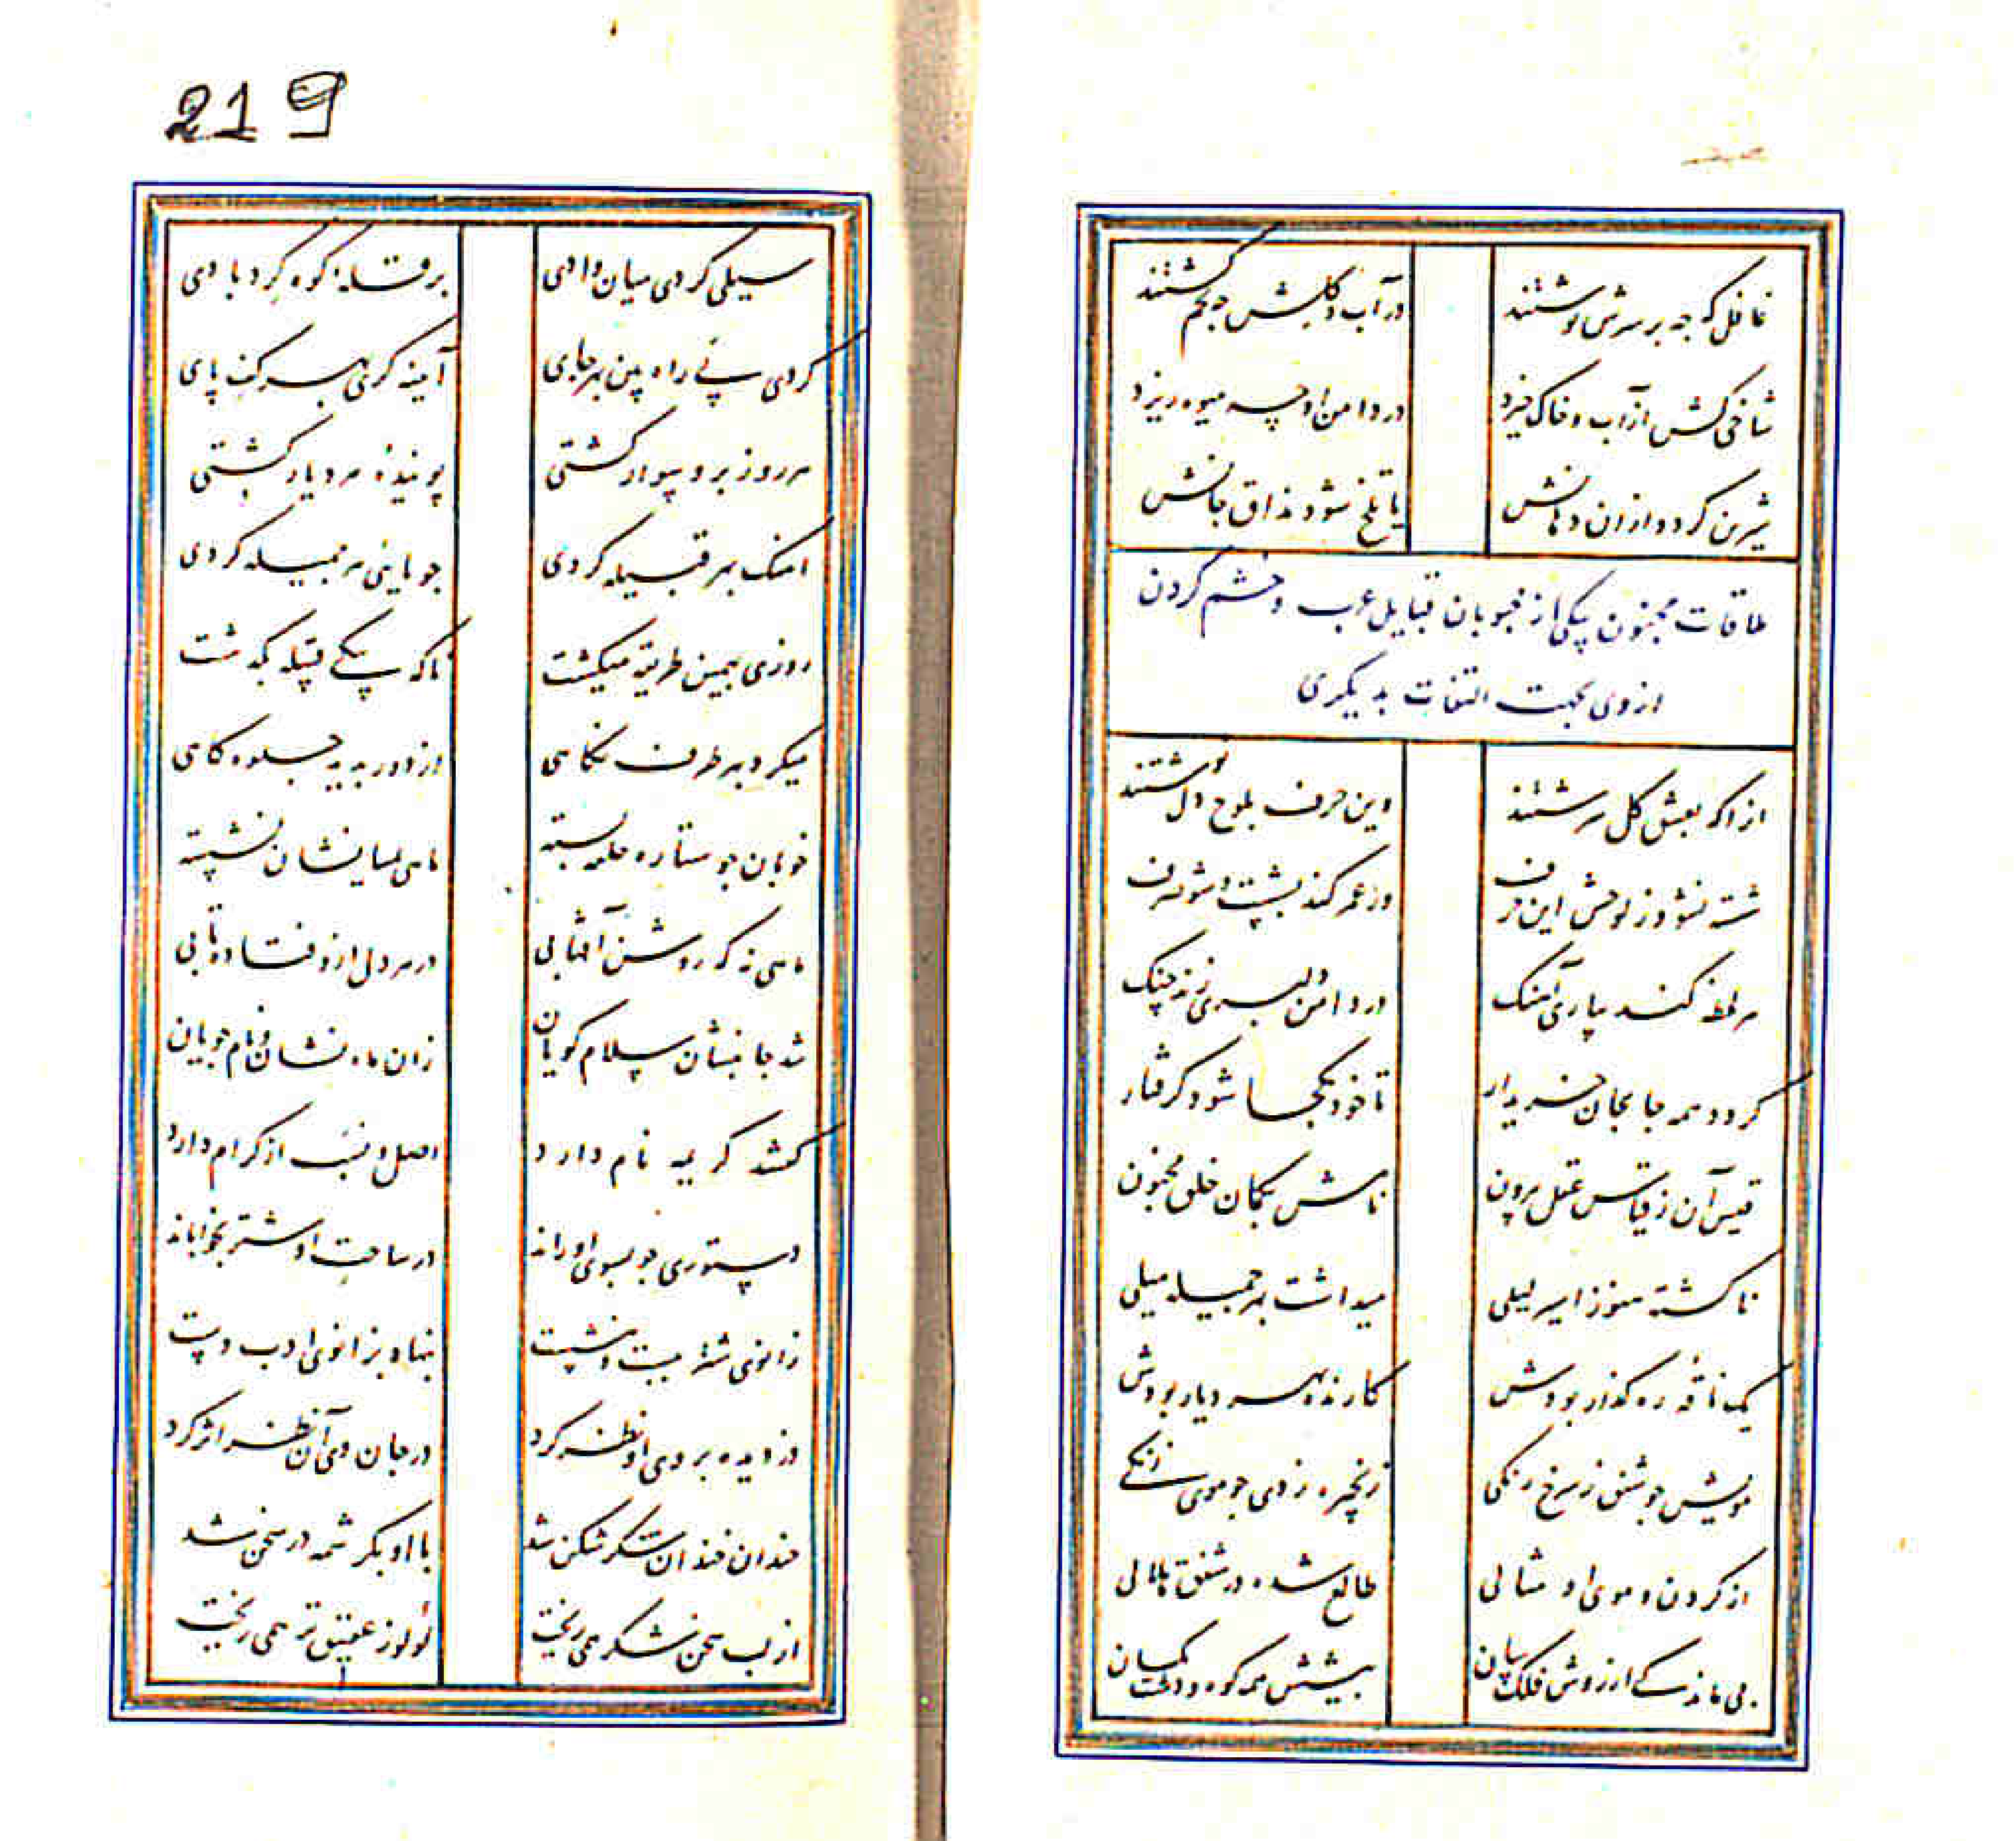 غافل که چه بر سرش نوشتند در آب و گلش چه تخم کشتند
شاخی کش از آب و خاک خیزد در دامن او چه میوه ریزد
شیرین گردد از آن دهانش یا تلخ شود مذاق جانش
ملاقات مجنون بیکی از خوبان قبایل عرب و خشم کردن
از وی بجهت التفات بدیگری
از اکه بعشق گل سرشتند وین حرف بلوح دل نوشتند
شسته نشود ز لوحش این حرف ور عمر کند بشست و شو صرف
هر لحظه کند بیاری آهنگ در دامن دلبری زند چنگ
گردد همه جا بجان خریدار تا خود بکجا شود گرفتار
قیس آن ز قیاس عقل بیرون نامش بگمان خلق مجنون
ناگشته هنوز اسیر لیلی میداشت بهر جمیله میلی
یک ناقه ره گذار بودش کارنده بهر دیار بودش
مویش چو شفق ز سرخ رنگی زنجیره ز دی چو موی زنگی
از گردن و موی او مثالی طالع شده در شفق هلالی
بی مانده کے از روش فلک سان پیشش همه کوه و دشت یکسان
219
سیلی کردی میان وادی بر قله کوه گردبادی
کردی پی راه بین بهر جای آینه گری بهر کف پای
هر روز برو سوار گشتی پوینده هر دیار گشتی
آهنگ بهر قبیله کردی جویایی هر جمیله کردی
روزی بهمین طریقه میگشت ناگه بیکے قبیله بگذشت
میکرد بهر طرف نگاهی از دور بدید جلوه گاهی
خوبان چو ستاره حلقه بسته ماهی بمیانشان نشسته
ماهی نه که روشن آفتابی در هر دل ازو فتاده تابی
شد جانبشان سلام گویان زان ماه نشان و نام جویان
گفتند کریمه نام دارد اصل و نسب از کرام دارد
دستوری جو بسوی او راند در ساحت او شتر بخواباند
زانوی شتر ببست و بنشست بنهاد بزانوی ادب دست
دزدیده بروی او نظر کرد در جان وی آن نظر اثر کرد
خندان خندان شکر شکن شد با او بکرشمه در سخن شد
از لب سخن شکر همی ریخت لولو ز عقیق تر همی ریخت